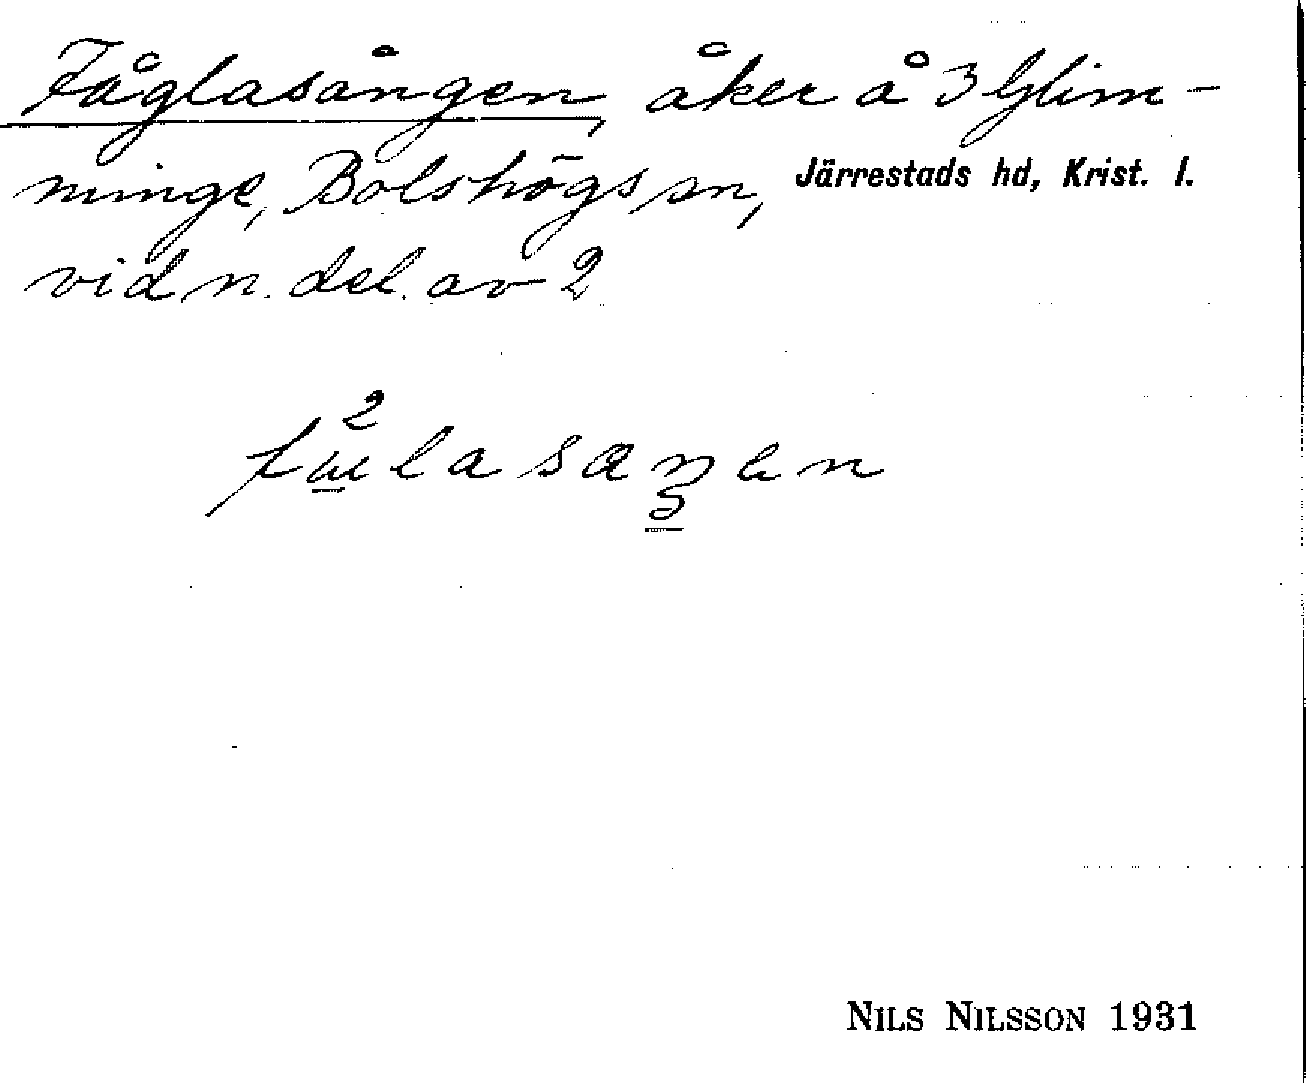 Fåglasången, åker å 3 Glim-
minge, Bolshögs sn, Järrestads hd, Krist. l.
vid n. del. av 2
NILS NILSSON 1931